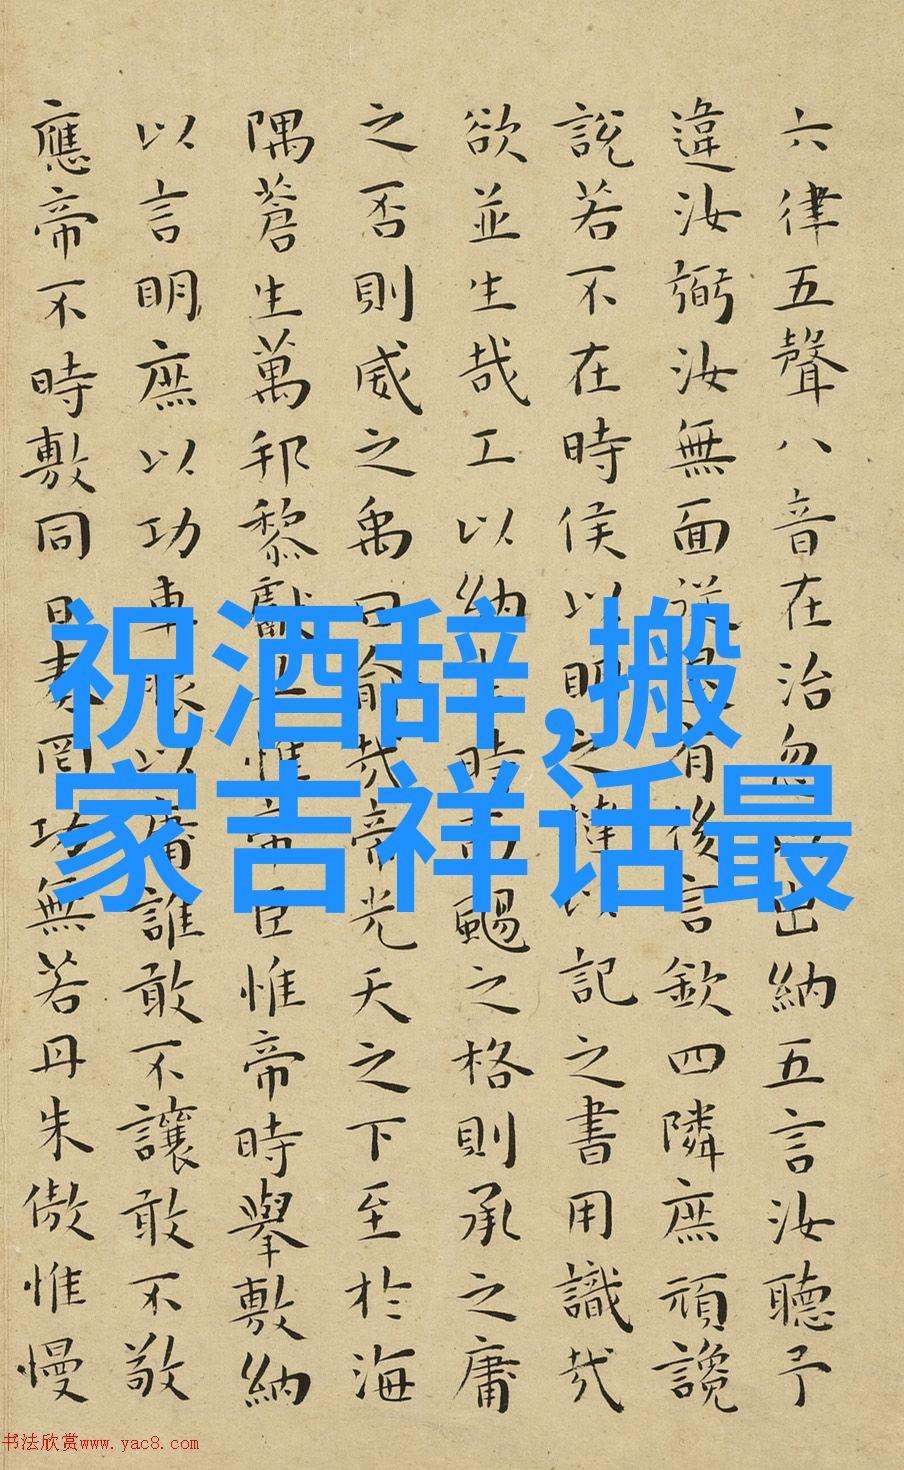 六律五聲八音在治忽以出納五言汝聽予
違汝弼汝無面從退有後言欽四隣庶頑讒
說若不在時侯以明之撻以記之書用識哉
欲並生哉工以納言時而颺之格則承之庸
之否則威之禹曰俞哉帝光天之下至於海
隅蒼生萬邦黎獻共惟帝臣惟帝時舉敷納
以言明庶以功車服以庸誰敢不讓敢不敬
應帝不時敷同日奏罔功無若丹朱傲惟慢
祝酒辞,搬
家吉祥话最
书法欣赏www.yac8.com